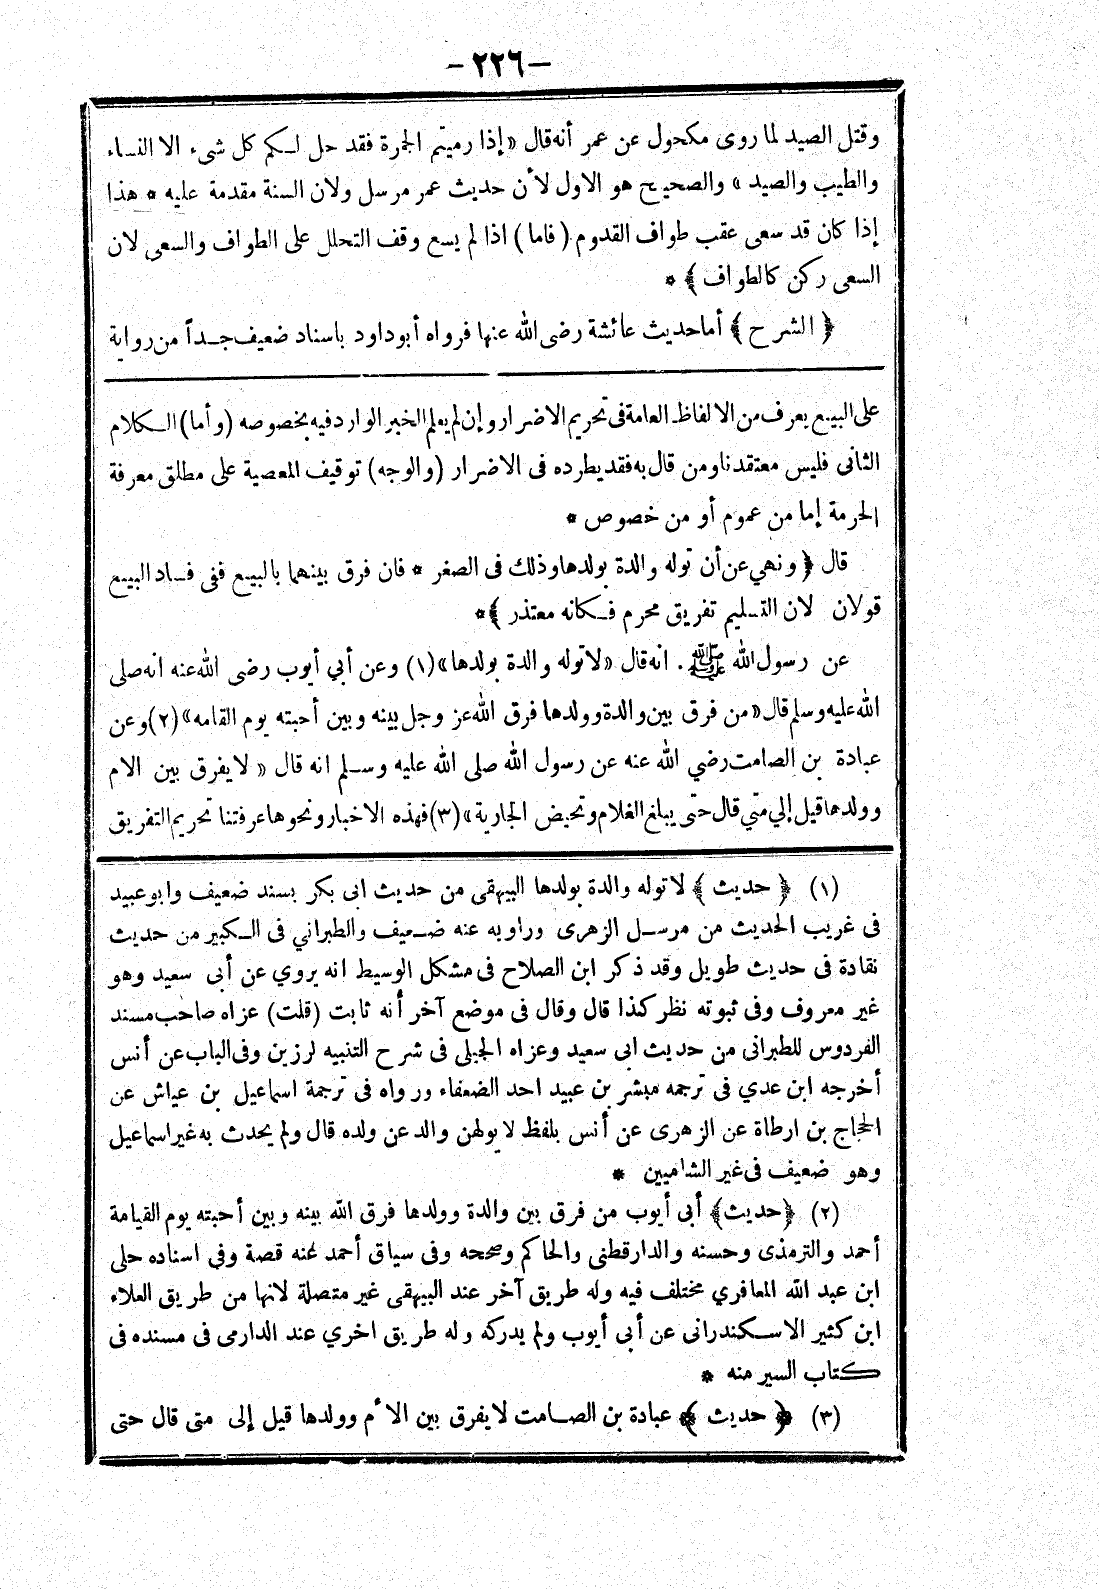 -٢٢٦-
وقتل الصيد لما روى مكحول عن عمر أنه قال «إذا رميتم الجمرة فقد حل لكم كل شيء الا النساء
والطيب والصيد» والصحيح هو الاول لأن حديث عمر مرسل ولان السنة مقدمة عليه * هذا
إذا كان قد سعى عقب طواف القدوم (فاما) اذا لم يسع وقف التحلل على الطواف والسعى لان
السعى ركن كالطواف﴾ *
﴿الشرح﴾ أما حديث عائشة رضى الله عنها فرواه أبو داود باسناد ضعيف جداً من رواية
على البيع يعرف من الالفاظ العامة فى تحريم الاضرار وإن لم يعلم الخبر الوارد فيه بخصوصه (وأما) الكلام
الثانى فليس معتقدنا ومن قال به فقد يطرده فى الاضرار (والوجه) توقيف المعصية على مطلق معرفة
الحرمة إما من عموم أو من خصوص *
قال ﴿ونهي عن أن توله والدة بولدها وذلك فى الصغر * فان فرق بينهما بالبيع ففى فساد البيع
قولان لان التسليم تفريق محرم فكانه معتذر﴾ *
عن رسول الله ﷺ . انه قال «لا توله والدة بولدها» (١) وعن أبي أيوب رضى الله عنه انه صلى
الله عليه وسلم قال «من فرق بين والدة وولدها فرق الله عز وجل بينه وبين أحبته يوم القامه» (٢) وعن
عبادة بن الصامت رضي الله عنه عن رسول الله صلى الله عليه وسلم انه قال «لا يفرق بين الام
وولدها قيل إلي متي قال حتى يبلغ الغلام وتحيض الجارية» (٣) فهذه الاخبار ونحوها عرفتنا تحريم التفريق
(١) ﴿حديث﴾ لا توله والدة بولدها البيهقى من حديث ابى بكر بسند ضعيف وابو عبيد
فى غريب الحديث من مرسل الزهرى وراويه عنه ضعيف والطبراني فى الكبير من حديث
نقادة فى حديث طويل وقد ذكر ابن الصلاح فى مشكل الوسيط انه يروي عن أبى سعيد وهو
غير معروف وفى ثبوته نظر كذا قال وقال فى موضع آخر أنه ثابت (قلت) عزاه صاحب مسند
الفردوس للطبرانى من حديث ابى سعيد وعزاه الجيلى فى شرح التنبيه لرزين وفى الباب عن أنس
أخرجه ابن عدي فى ترجمه مبشر بن عبيد احد الضعفاء ورواه فى ترجمة اسماعيل بن عياش عن
الحجاج بن ارطاة عن الزهرى عن أنس بلفظ لا يولهن والد عن ولده قال ولم يحدث به غير اسماعيل
وهو ضعيف فى غير الشاميين *
(٢) ﴿حديث﴾ أبى أيوب من فرق بين والدة وولدها فرق الله بينه وبين أحبته يوم القيامة
أحمد والترمذى وحسنه والدارقطنى والحاكم وصححه وفى سياق أحمد عنه قصة وفي اسناده حلى
ابن عبد الله المعافري مختلف فيه وله طريق آخر عند البيهقى غير متصلة لانها من طريق العلاء
ابن كثير الاسكندرانى عن أبى أيوب ولم يدركه وله طريق اخري عند الدارمى فى مسنده فى
كتاب السير منه *
(٣) ﴿حديث﴾ عبادة بن الصامت لا يفرق بين الأم وولدها قيل إلى متى قال حتى